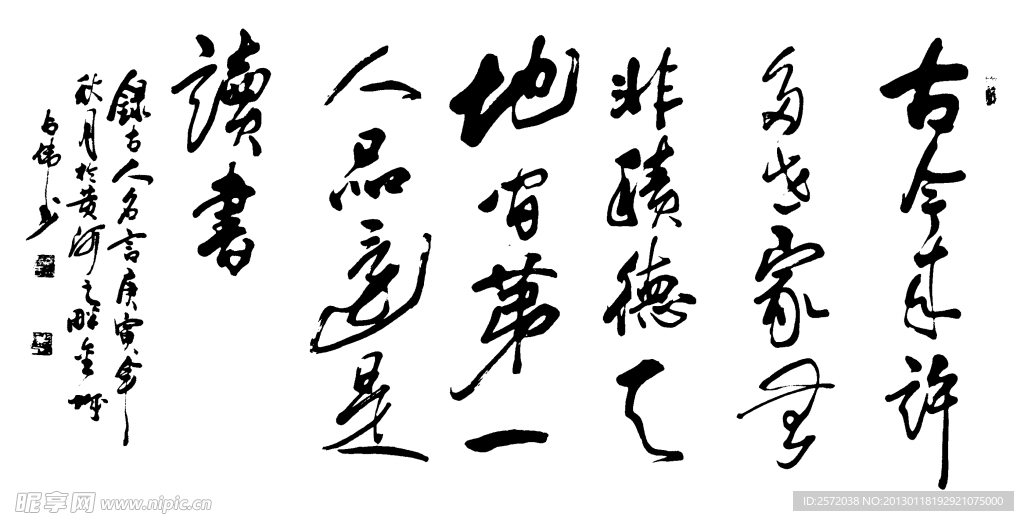 古今来許
多世家無
非積德天
地間第一
人品還是
讀書
錄古人名言庚寅年
秋月於黄河之畔金城
占偉书
昵享网 www.nipic.cn
ID:2572038 NO:20130118192921075000